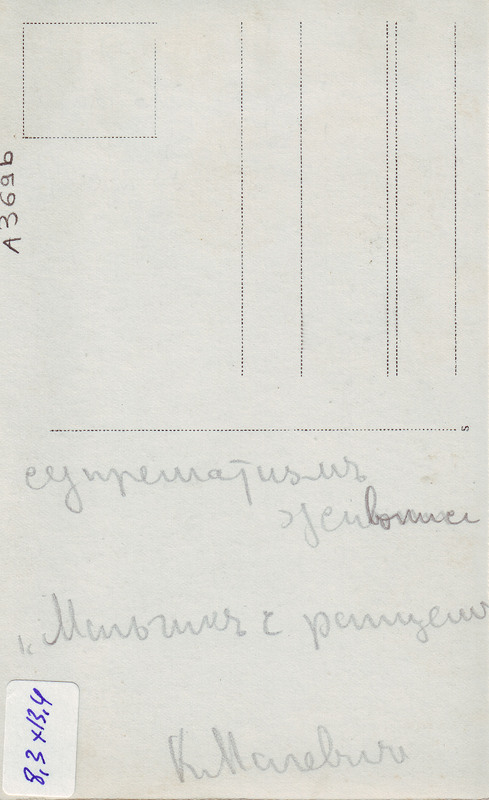 A369b
s
супрематизмъ
живописи
„Мальчикъ с ранцемъ
К Малевичъ
8,3 x 13,4